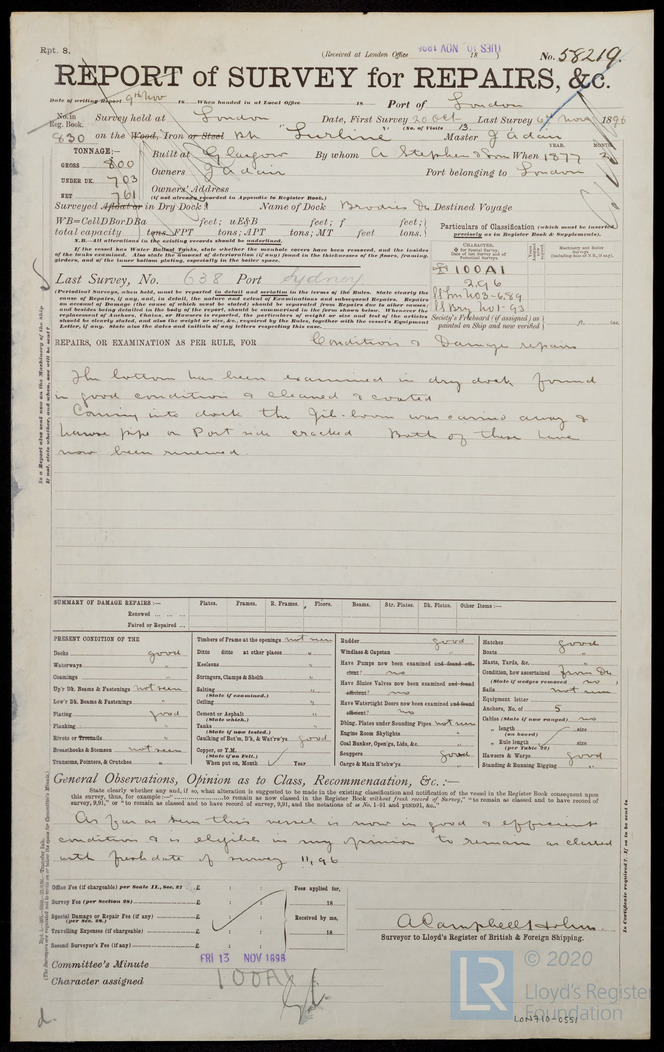 Rpt. 8.
(Received at London Office 18 )
No. 58219.
REPORT of SURVEY for REPAIRS, &c.
Date of writing Report 9th Nov 18 When handed in at Local Office 18 Port of London
No. in Reg. Book. Survey held at London Date, First Survey 20 Oct Last Survey 6th Nov 1896
(No. of Visits 13.)
830 on the Wood, Iron or Steel Bk "Lurline" Master J Adair
TONNAGE:—
GROSS 800
UNDER DK. 703
NET 761
Built at Glasgow By whom A Stephen & Son When 1877 YEAR. MONTH.
Owners J Adair Port belonging to London
Owners' Address
(if not already recorded in Appendix to Register Book.)
Surveyed Afloat or in Dry Dock? Name of Dock Brodies Dk Destined Voyage
WB=CellDBorDBa feet; uE&B feet; f feet;
total capacity tons. FPT tons; APT tons; MT feet tons.
N.B.—All alterations in the existing records should be underlined.
If the vessel has Water Ballast Tanks, state whether the manhole covers have been removed, and the insides
of the tanks examined. Also state the amount of deterioration (if any) found in the thickness of the floors, framing,
girders, and of the inner bottom plating, especially in the boiler space.
Particulars of Classification (which must be inserted
precisely as in Register Book & Supplements).
100A1
2.96
SS Lon No3-6.89
SS Bry No1-93
Society's Freeboard (if assigned) as
painted on Ship and now verified ft. ins.
Last Survey, No. 638 Port Sydney
(Periodical Surveys, when held, must be reported in detail and seriatim in the terms of the Rules. State clearly the
cause of Repairs, if any, and, in detail, the nature and extent of Examinations and subsequent Repairs. Repairs
on account of Damage (the cause of which must be stated) should be separated from Repairs due to other causes;
and besides being detailed in the body of the report, should be summarised in the form shown below. Whenever the
replacement of Anchors, Chains, or Hawsers is reported, the particulars of weight or size and test of the articles
should be clearly stated, and also the weight or size, &c., required by the Rules, together with the vessel's Equipment
Letter, if any. State also the dates and initials of any letters respecting this case.
REPAIRS, OR EXAMINATION AS PER RULE, FOR Condition & Damage repairs
The bottom has been examined in dry dock found
in good condition & cleaned & coated
Coming into dock the Jib-boom was carried away &
hawse pipe on Port side cracked Both of these have
now been renewed.
SUMMARY OF DAMAGE REPAIRS:— Plates. Frames. R. Frames. Floors. Beams. Str. Plates. Dk. Plates. Other Items:—
Renewed
Faired or Repaired
PRESENT CONDITION OF THE
Decks good
Waterways "
Coamings "
Up'r Dk. Beams & Fastenings not seen
Low'r Dk. Beams & Fastenings "
Plating good
Planking
Rivets or Treenails "
Breasthooks & Stemson not seen
Transoms, Pointers, & Crutches "
Timbers of Frame at the openings not seen
Ditto ditto at other places "
Keelsons "
Stringers, Clamps & Shelfs "
Salting "
(State if examined.)
Ceiling "
Cement or Asphalt "
(State which.)
Tanks "
(State if now tested.)
Caulking of Bot'm, D'k, & Wat'rw'ys good
Copper, or T.M.
(State if on Felt.)
When put on, Month Year
Rudder good
Windlass & Capstan "
Have Pumps now been examined and found efficient? no
Have Sluice Valves now been examined and found efficient? no
Have Watertight Doors now been examined and found efficient? no
Dblng. Plates under Sounding Pipes not seen
Engine Room Skylights
Coal Bunker, Open'gs, Lids, &c.
Scuppers good
Cargo & Main H'tchw'ys "
Hatches good
Boats "
Masts, Yards, &c. "
Condition, how ascertained from Dk
(State if wedges removed no)
Sails not seen
Equipment letter
Anchors, No. of 5
Cables (State if now ranged) no
" length (on board) size
" Rule length (per Table 22) size
Hawsers & Warps good
Standing & Running Rigging "
General Observations, Opinion as to Class, Recommendation, &c. :—
State clearly whether any, and if so, what alteration is suggested to be made in the existing classification and notification of the vessel in the Register Book consequent upon
As far as seen this vessel is now in good & efficient
condition & is eligible in my opinion to remain as classed
with fresh date of survey 11,96
Office Fee (if chargeable) per Scale II., Sec. 27 £ : : Fees applied for,
Survey Fee (per Section 28) £ : : 18
Special Damage or Repair Fee (if any) (per Sec. 28.) £ : : Received by me,
Travelling Expenses (if chargeable) £ : : 18
Second Surveyor's Fee (if any) £ : :
A Campbell Holms
Surveyor to Lloyd's Register of British & Foreign Shipping.
Committee's Minute FRI 13 NOV 1896
Character assigned 100A1
© 2020
LR
Lloyd's Register
Foundation
LON710-0551